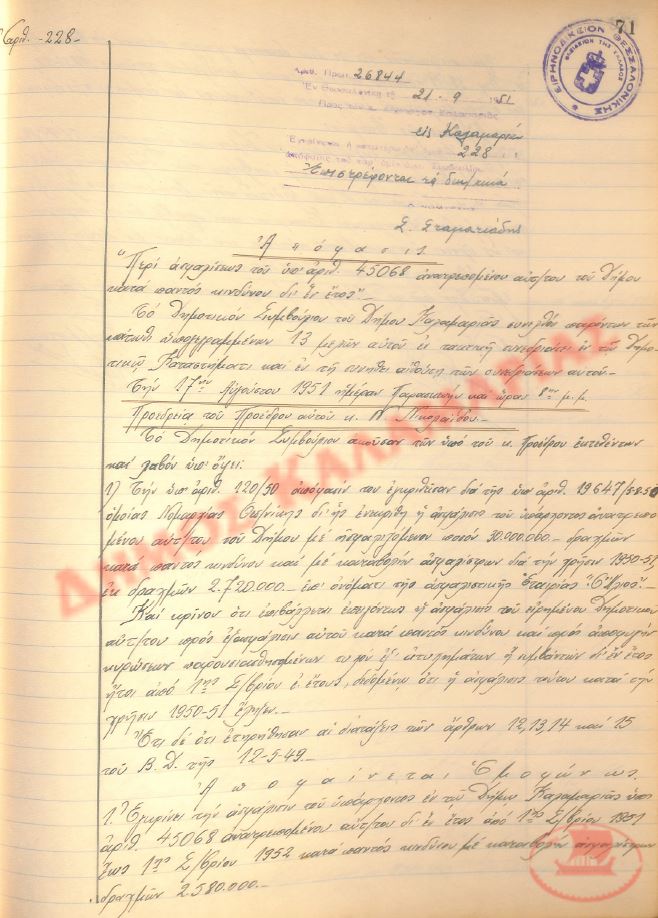 71
Ἀριθ. -228-
ΕΙΡΗΝΟΔΙΚΕΙΟΝ ΘΕΣΣΑΛΟΝΙΚΗΣ
ΒΑΣΙΛΕΙΟΝ ΤΗΣ ΕΛΛΑΔΟΣ
Ἀριθ. Πρωτ. 26844
Ἐν Θεσσαλονίκῃ τῇ 21-9-1951
εἰς Καλαμαριάν
228
Ἐπιστρέφονται τὰ δικ/τικά
Σ. Σταματιάδης
Ἀπόφασις
"Περὶ ἀσφαλίσεως τοῦ ὑπ' ἀριθ. 45068 ἀνατρεπομένου αὐτ/του τοῦ Δήμου
κατὰ παντὸς κινδύνου δι' ἓν ἔτος".
Τὸ Δημοτικὸν Συμβούλιον τοῦ Δήμου Καλαμαριᾶς συνελθὸν παρόντων τῶν
κάτωθι ὑπογεγραμμένων 13 μελῶν αὐτοῦ ἐν τακτικῇ συνεδριάσει ἐν τῷ Δημο-
τικῷ Καταστήματι καὶ ἐν τῇ συνήθει αἰθούσῃ τῶν συνεδριάσεων αὐτοῦ.-
Τὴν 17ην Αὐγούστου 1951 ἡμέραν Παρασκευὴν καὶ ὥραν 8ην μ.μ.
Προεδρείᾳ τοῦ Προέδρου αὐτοῦ κ. Ν. Νικολαΐδου.-
Τὸ Δημοτικὸν Συμβούλιον ἀκοῦσαν τῶν ὑπὸ τοῦ κ. Προέδρου ἐκτεθέντων
καὶ λαβὸν ὑπ' ὄψει:
1) Τὴν ὑπ' ἀριθ. 120/50 ἀπόφασίν του ἐγκριθεῖσαν διὰ τῆς ὑπ' ἀριθ. 19647/5-8-50
ὁμοίας Νομαρχίας Θεσ/νίκης δι' ἧς ἐνεκρίθη ἡ ἀσφάλισις τοῦ ὑπάρχοντος ἀνατρεπο-
μένου αὐτ/του τοῦ Δήμου μὲ ἠσφαλιζόμενον ποσὸν 30.000.000- δραχμῶν
κατὰ παντὸς κινδύνου καὶ μὲ καταβολὴν ἀσφαλίστρων διὰ τὴν χρῆσιν 1950-51,
ἐκ δραχμῶν 2.720.000.- ἐπ' ὀνόματι τῆς ἀσφαλιστικῆς Ἑταιρίας "Ὁ Ἥλιος".-
Καὶ κρίνον ὅτι ἐπιβάλλεται ἐπειγόντως ἡ ἀσφάλισις τοῦ εἰρημένου Δημοτικοῦ
αὐτ/του πρὸς ἐξασφάλισιν αὐτοῦ κατὰ παντὸς κινδύνου καὶ πρὸς ἀποφυγὴν
κυρώσεων τυχὸν ἐξ ἀτυχημάτων ἢ συμβάντων δι' ἓν ἔτος
ἤτοι ἀπὸ 1ης Σ/βρίου ἐ. ἔτους, δεδομένου ὅτι ἡ ἀσφάλισις τούτου κατὰ τὴν
χρῆσιν 1950-51 ἔληξεν.-
Ἔτι δὲ ὅτι ἐτηρήθησαν αἱ διατάξεις τῶν ἄρθρων 12, 13, 14 καὶ 15
τοῦ Β.Δ. τῆς 12-5-49.-
Ἀποφαίνεται Ὁμοφώνως
1. Ἐγκρίνει τὴν ἀσφάλισιν τοῦ ὑπάρχοντος ἐν τῷ Δήμῳ Καλαμαριᾶς ὑπ'
ἀριθ. 45068 ἀνατρεπομένου αὐτ/του δι' ἓν ἔτος ἀπὸ 1ης Σ/βρίου 1951
ἕως 1ης Σ/βρίου 1952 κατὰ παντὸς κινδύνου μὲ καταβολὴν ἀσφαλίστρων
δραχμῶν 2.580.000.-
ΔΗΜΟΣ ΚΑΛΑΜΑΡΙΑΣ